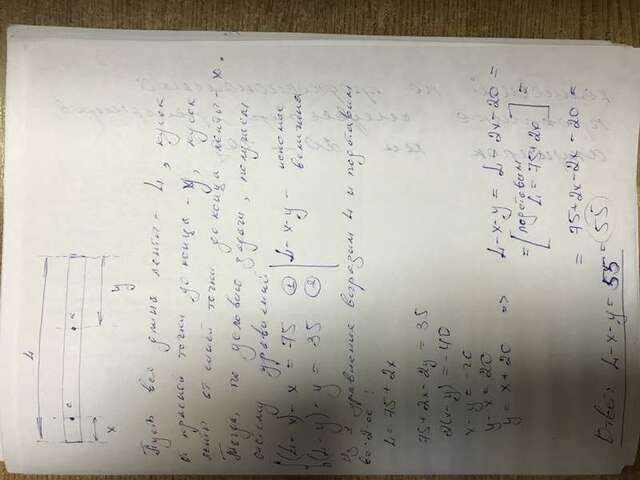 L
с
к
x
y
Пусть вся длина ленты - L, кусок
от красной точки до конца - y, кусок
ленты от синей точки до конца ленты - x.
Тогда, по условию задачи, получаем
систему уравнений
(L - x) - x = 75 ① L - x - y - искомая
(L - y) - y = 35 ② величина
Из 1 уравнение выразим L и подставим
во 2-ое:
L = 75 + 2x
75 + 2x - 2y = 35
2(x - y) = -40
x - y = -20
y - x = 20
y = x + 20 => L - x - y = L - 2x - 20 =
= [подставим L = 75 + 2x] =
= 75 + 2x - 2x - 20 =
= 55
Ответ: L - x - y = 55